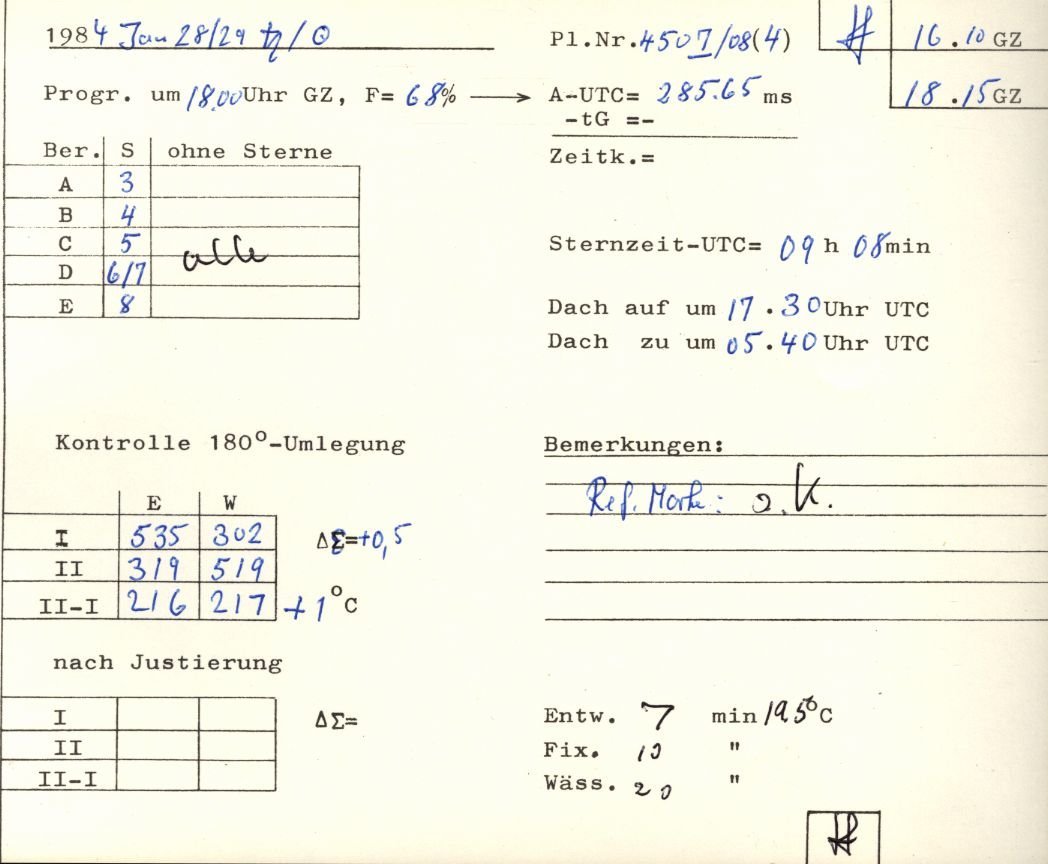 1984 Jan 28/29 ♄/☉
Pl.Nr. 4507/08(4)
16.10 GZ
Progr. um 18.00 Uhr GZ, F= 68% → A-UTC= 285.65 ms
18.15 GZ
-tG =-
Zeitk.=
Ber. S ohne Sterne
A 3
B 4
C 5 alle
D 6/7
E 8
Sternzeit-UTC= 09 h 08 min
Dach auf um 17.30 Uhr UTC
Dach zu um 05.40 Uhr UTC
Kontrolle 180°-Umlegung
E W
I 535 302 ΔΣ=+0,5
II 319 519
II-I 216 217 +1°C
nach Justierung
I ΔΣ=
II
II-I
Bemerkungen:
Ref. Marke: o.k.
Entw. 7 min 19.5°C
Fix. 10 "
Wäss. 20 "